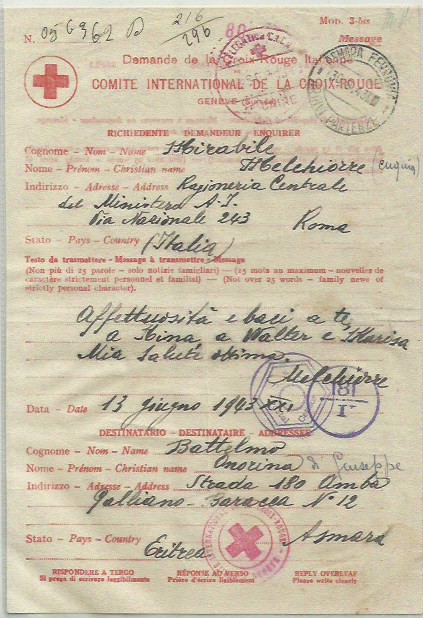 MOD. 3-bis
N. 05 G962 D 216/296 80 Message
Demande de la Croix Rouge Italienne
COMITE INTERNATIONAL DE LA CROIX-ROUGE
GENEVE (Suisse)
RICHIEDENTE - DEMANDEUR - ENQUIRER
Cognome - Nom - Name Mirabile
Nome - Prénom - Christian name Melchiorre (cugino)
Indirizzo - Adresse - Address Ragioneria Centrale
del Ministero A.I.
Via Nazionale 243 Roma
Stato - Pays - Country (Italia)
Testo da trasmettere - Message à transmettre - Message
(Non più di 25 parole - solo notizie famigliari) - (25 mots au maximum - nouvelles de
caractère strictement personnel et familial) - (Not over 25 words - family news of
strictly personal character).
Affettuosità e baci a te,
a Nina, a Walter e Marisa
Mia salute ottima.
Melchiorre
Data - Date 13 Giugno 1943 XXI
181
I
DESTINATARIO - DESTINATAIRE - ADDRESSEE
Cognome - Nom - Name Battelmo
Nome - Prénom - Christian name Onorina di Giuseppe
Indirizzo - Adresse - Address Strada 180 Amba
Galliano - Baracca N° 12
Asmara
Stato - Pays - Country Eritrea
RISPONDERE A TERGO RÉPONSE AU VERSO REPLY OVERLEAF
Si prega di scrivere leggibilmente Prière d'écrire lisiblement Please write clearly